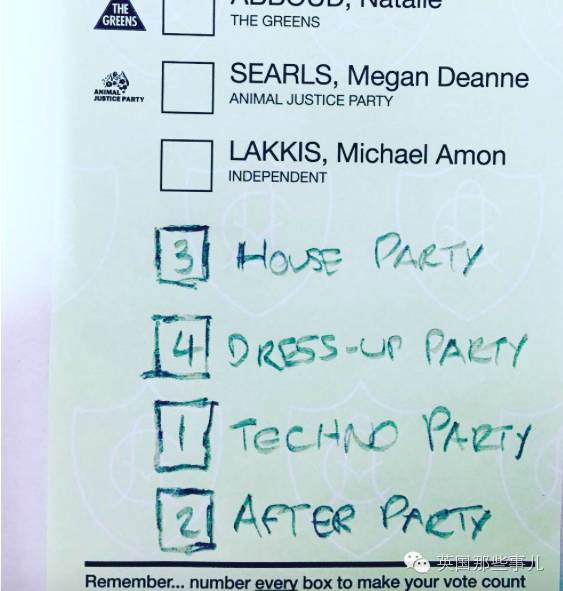 THE
GREENS
ABBOUD, Natalie
THE GREENS
ANIMAL
JUSTICE PARTY
SEARLS, Megan Deanne
ANIMAL JUSTICE PARTY
LAKKIS, Michael Amon
INDEPENDENT
3 HOUSE PARTY
4 DRESS-UP PARTY
1 TECHNO PARTY
2 AFTER PARTY
英国那些事儿
Remember... number every box to make your vote count